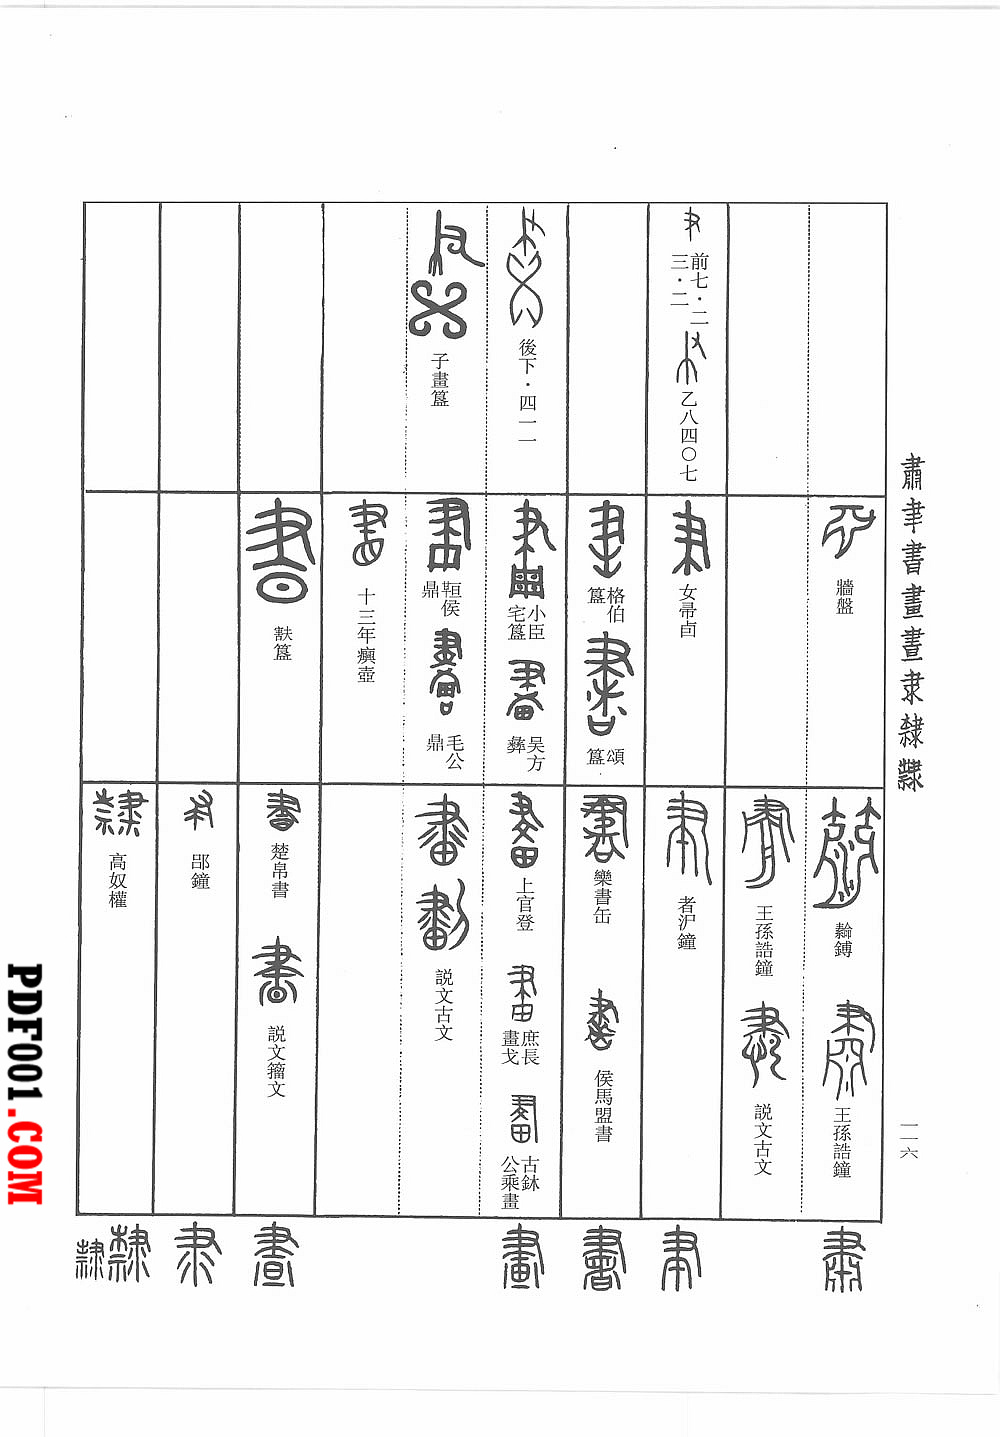 肅聿書畫晝隶隸隸
一一六
牆盤
𪒠鎛
王孫誥鐘
王孫誥鐘
説文古文
前七·二三·二
乙八四〇七
女帚卣
者沪鐘
格伯簋
頌簋
欒書缶
侯馬盟書
後下·四一一
小臣宅簋
吴方彝
上官登
庶長畫戈
古鉢公乘畫
子畫簋
毛公鼎
説文古文
十三年𤼈壺
㝬簋
楚帛書
説文籀文
郘鐘
高奴權
PDF001.COM